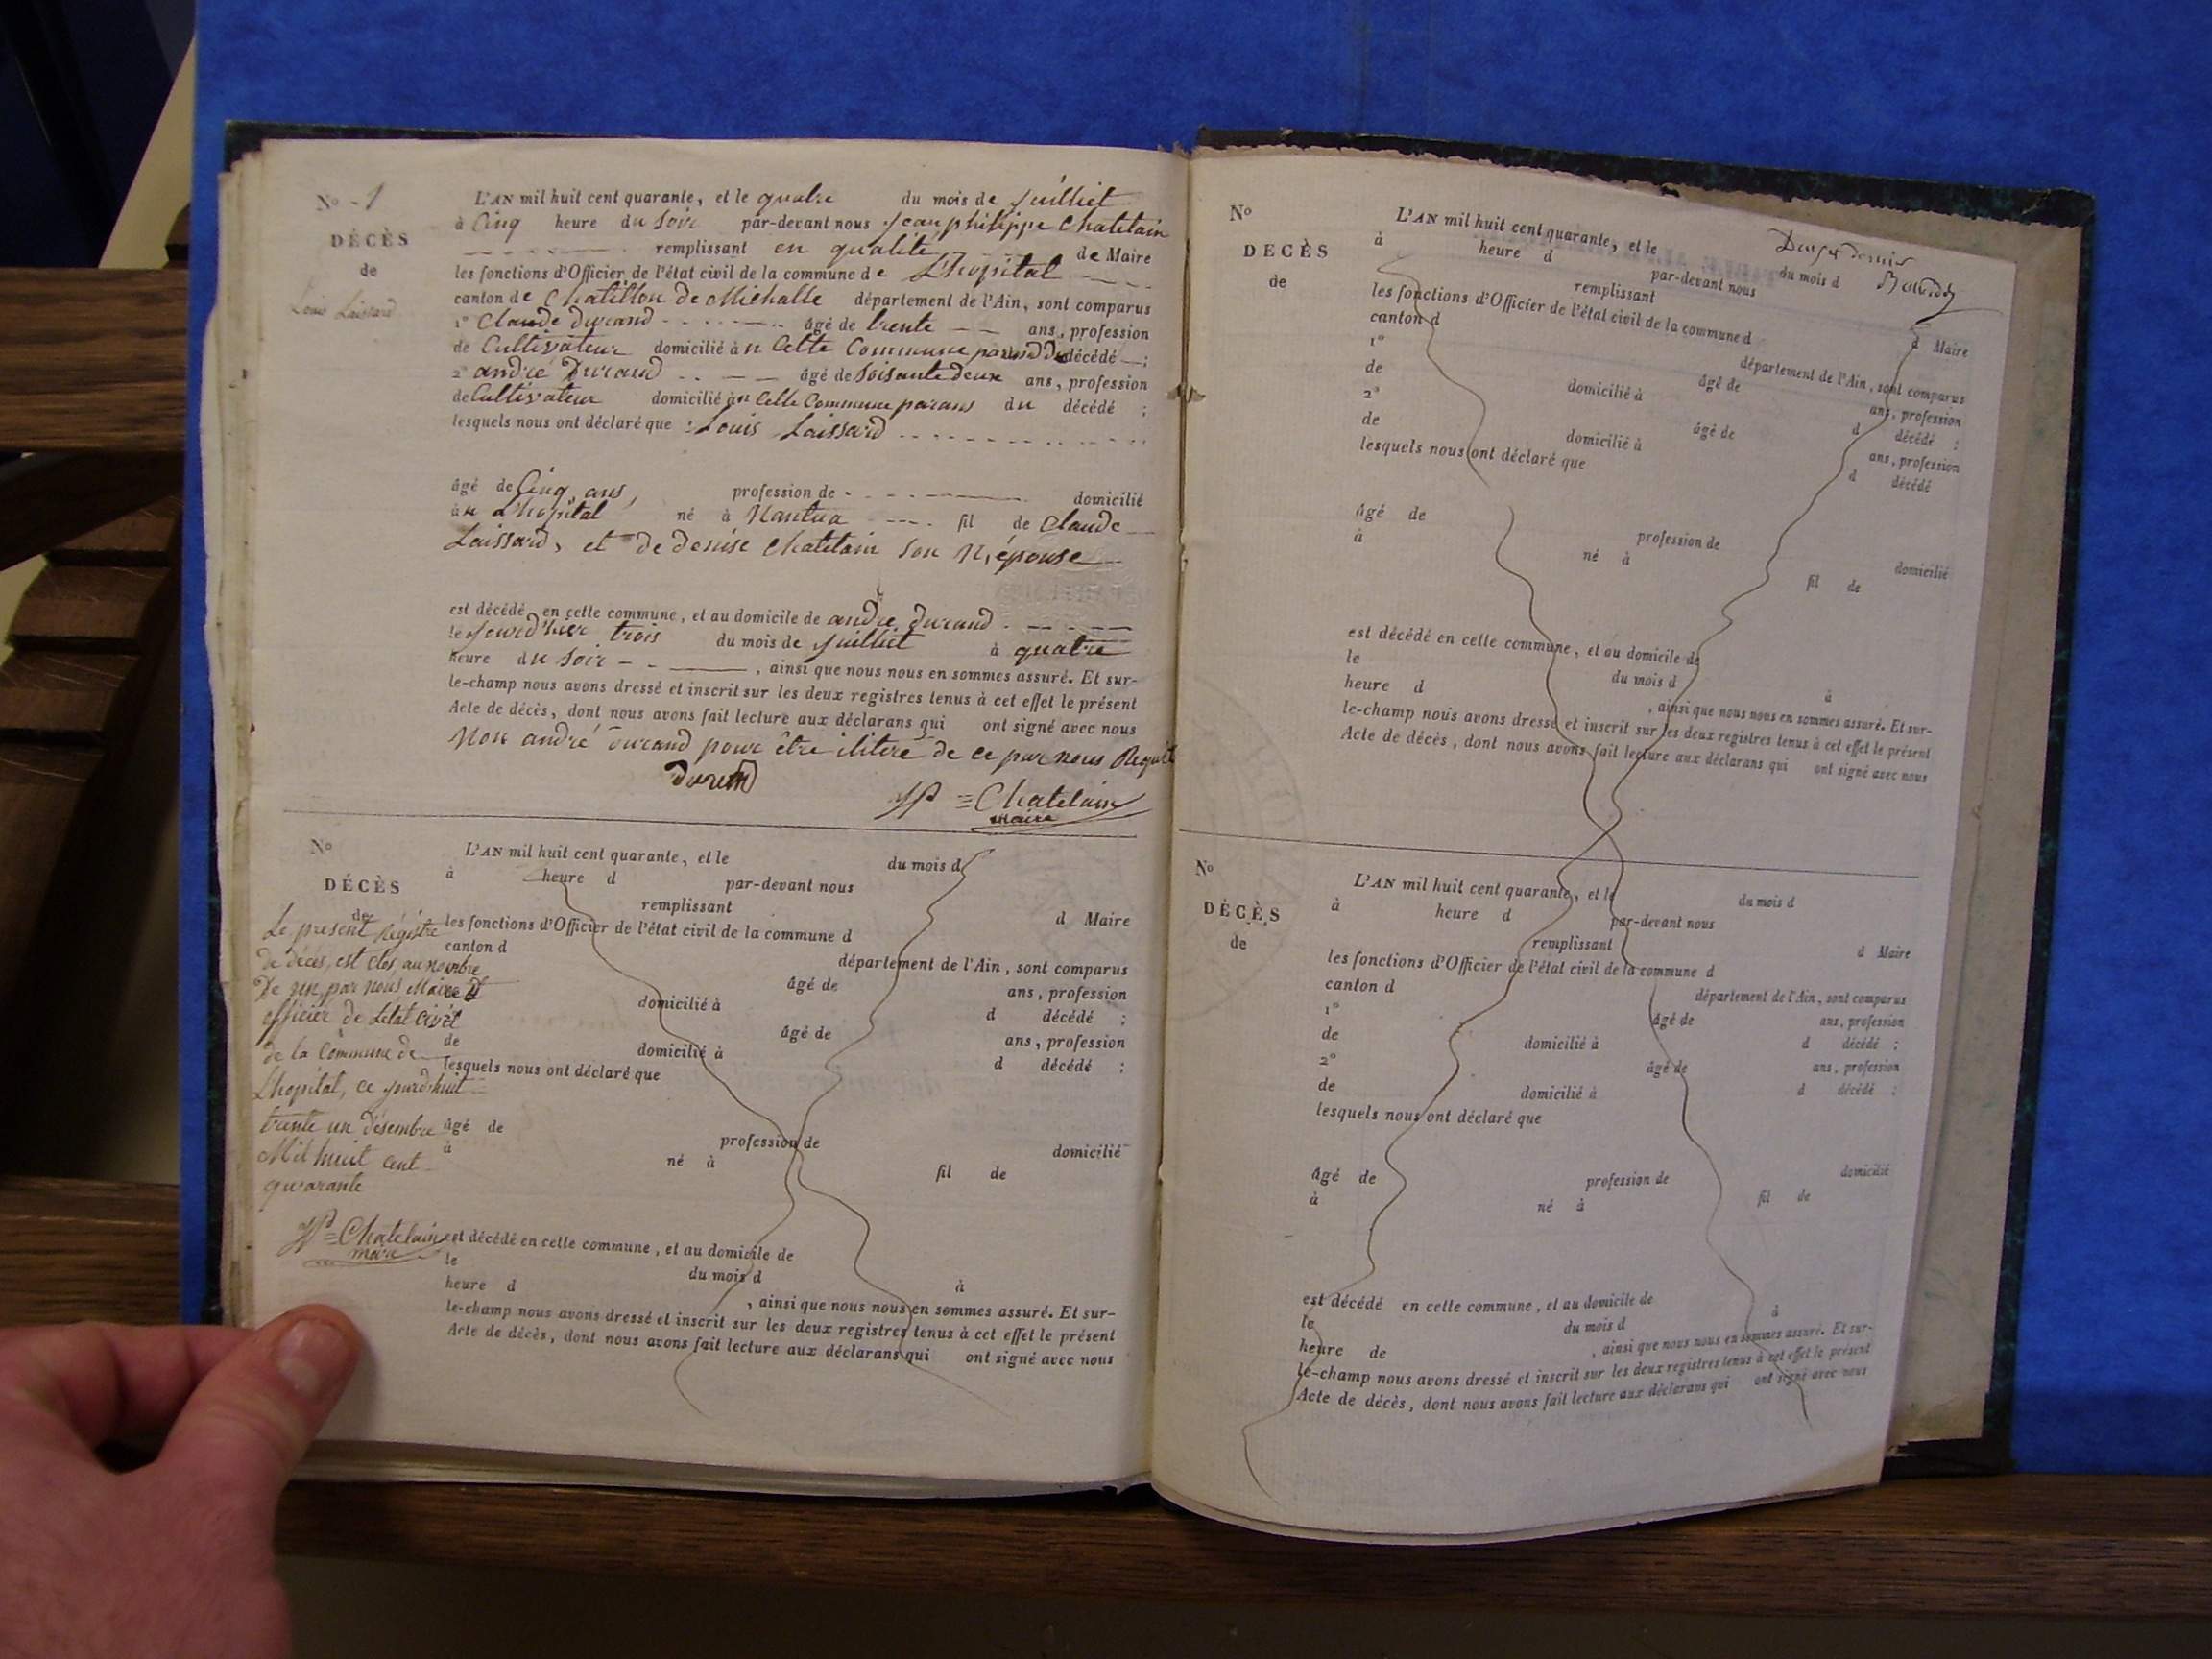 No 1
DÉCÈS
de
Louis Laissard
L'AN mil huit cent quarante, et le quatre du mois de juilliet
à Cinq heure du Soir par-devant nous jean philippe Chatelain
remplissant en qualité de Maire
les fonctions d'Officier de l'état civil de la commune de L'hopital
canton de Chatillon de Michalle département de l'Ain, sont comparus
1° Claude Durand âgé de trente ans, profession
de Cultivateur domicilié àn Cette Commune décédé ;
2° andré Durand âgé de soisante deux ans, profession
de Cultivateur domicilié àn Cette Commune parans du décédé ;
lesquels nous ont déclaré que : Louis Laissard
âgé de Cinq ans, profession de domicilié
à L'hopital né à Nantua fil de claude
Laissard, et de denise Chatelain son épouse
est décédé en cette commune, et au domicile de andré durand
le jourd'hier trois du mois de juilliet à quatre
heure du soir , ainsi que nous nous en sommes assuré. Et sur-
le-champ nous avons dressé et inscrit sur les deux registres tenus à cet effet le présent
Acte de décès, dont nous avons fait lecture aux déclarans qui ont signé avec nous
Non andré durand pour être ilitéré de ce par nous Requit
durand
JP = Chatelain
maire
No
DÉCÈS
de
L'AN mil huit cent quarante, et le du mois d
à heure d par-devant nous
remplissant d Maire
les fonctions d'Officier de l'état civil de la commune d
canton d département de l'Ain, sont comparus
âgé de ans, profession
domicilié à d décédé ;
âgé de ans, profession
de domicilié à d décédé ;
lesquels nous ont déclaré que
âgé de profession de domicilié
à né à fil de
est décédé en cette commune, et au domicile de
le du mois d à
heure d , ainsi que nous nous en sommes assuré. Et sur-
le-champ nous avons dressé et inscrit sur les deux registres tenus à cet effet le présent
Acte de décès, dont nous avons fait lecture aux déclarans qui ont signé avec nous
Le présent Régistre
de décès, est clos, au nombre
De un, par nous Maire et
officier de Létat civil
de la Commune de
L'hopital, ce jourd'huit
trente un désembre
Mil huit cent
quarante
JP = Chatelain
maire
No
DÉCÈS
de
L'AN mil huit cent quarante, et le du mois d
à heure d par-devant nous
remplissant d Maire
les fonctions d'Officier de l'état civil de la commune d
canton d département de l'Ain, sont comparus
1° âgé de ans, profession
de domicilié à d décédé ;
2° âgé de ans, profession
de domicilié à d décédé
lesquels nous ont déclaré que
âgé de profession de domicilié
à né à fil de
est décédé en cette commune, et au domicile de
le du mois d à
heure d , ainsi que nous nous en sommes assuré. Et sur-
le-champ nous avons dressé et inscrit sur les deux registres tenus à cet effet le présent
Acte de décès, dont nous avons fait lecture aux déclarans qui ont signé avec nous
No
DÉCÈS
de
L'AN mil huit cent quarante, et le du mois d
à heure d par-devant nous
remplissant d Maire
les fonctions d'Officier de l'état civil de la commune d
canton d département de l'Ain, sont comparus
1° âgé de ans, profession
de domicilié à d décédé ;
2° âgé de ans, profession
de domicilié à d décédé ;
lesquels nous ont déclaré que
âgé de profession de domicilié
à né à fil de
est décédé en cette commune, et au domicile de
le du mois d à
heure de , ainsi que nous nous en sommes assuré. Et sur-
le-champ nous avons dressé et inscrit sur les deux registres tenus à cet effet le présent
Acte de décès, dont nous avons fait lecture aux déclarans qui ont signé avec nous